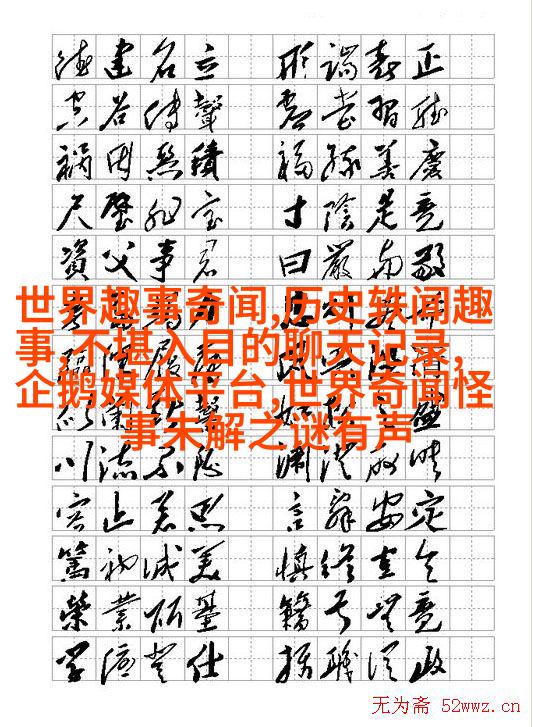 德建名立 形端表正
空谷傳聲 虚堂習聽
禍因惡積 福緣善慶
尺璧非宝 寸陰是竞
資父事君 曰嚴與敬
世界趣事奇闻,历史轶闻趣
事,不堪入目的聊天记录,
企鹅媒体平台,世界奇闻怪
事未解之谜有声
川流不息 淵澄取映
容止若思 言辭安定
篤初诚美 慎终宜令
榮業所基 籍甚無竟
學優登仕 攝職從政
无为斋 52wwz.cn